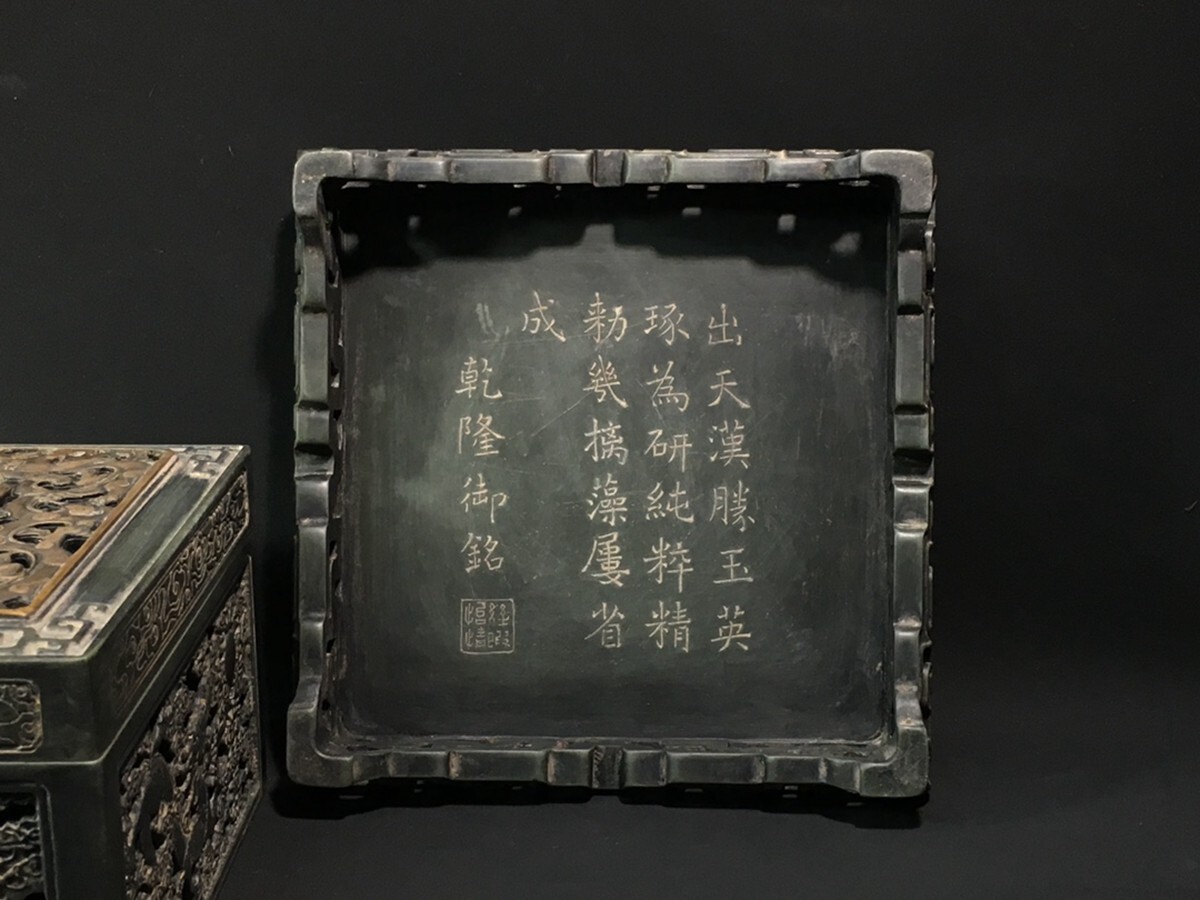 出天漢勝玉英
琢為研純粹精
勑幾摛藻屢省
成
乾隆御銘